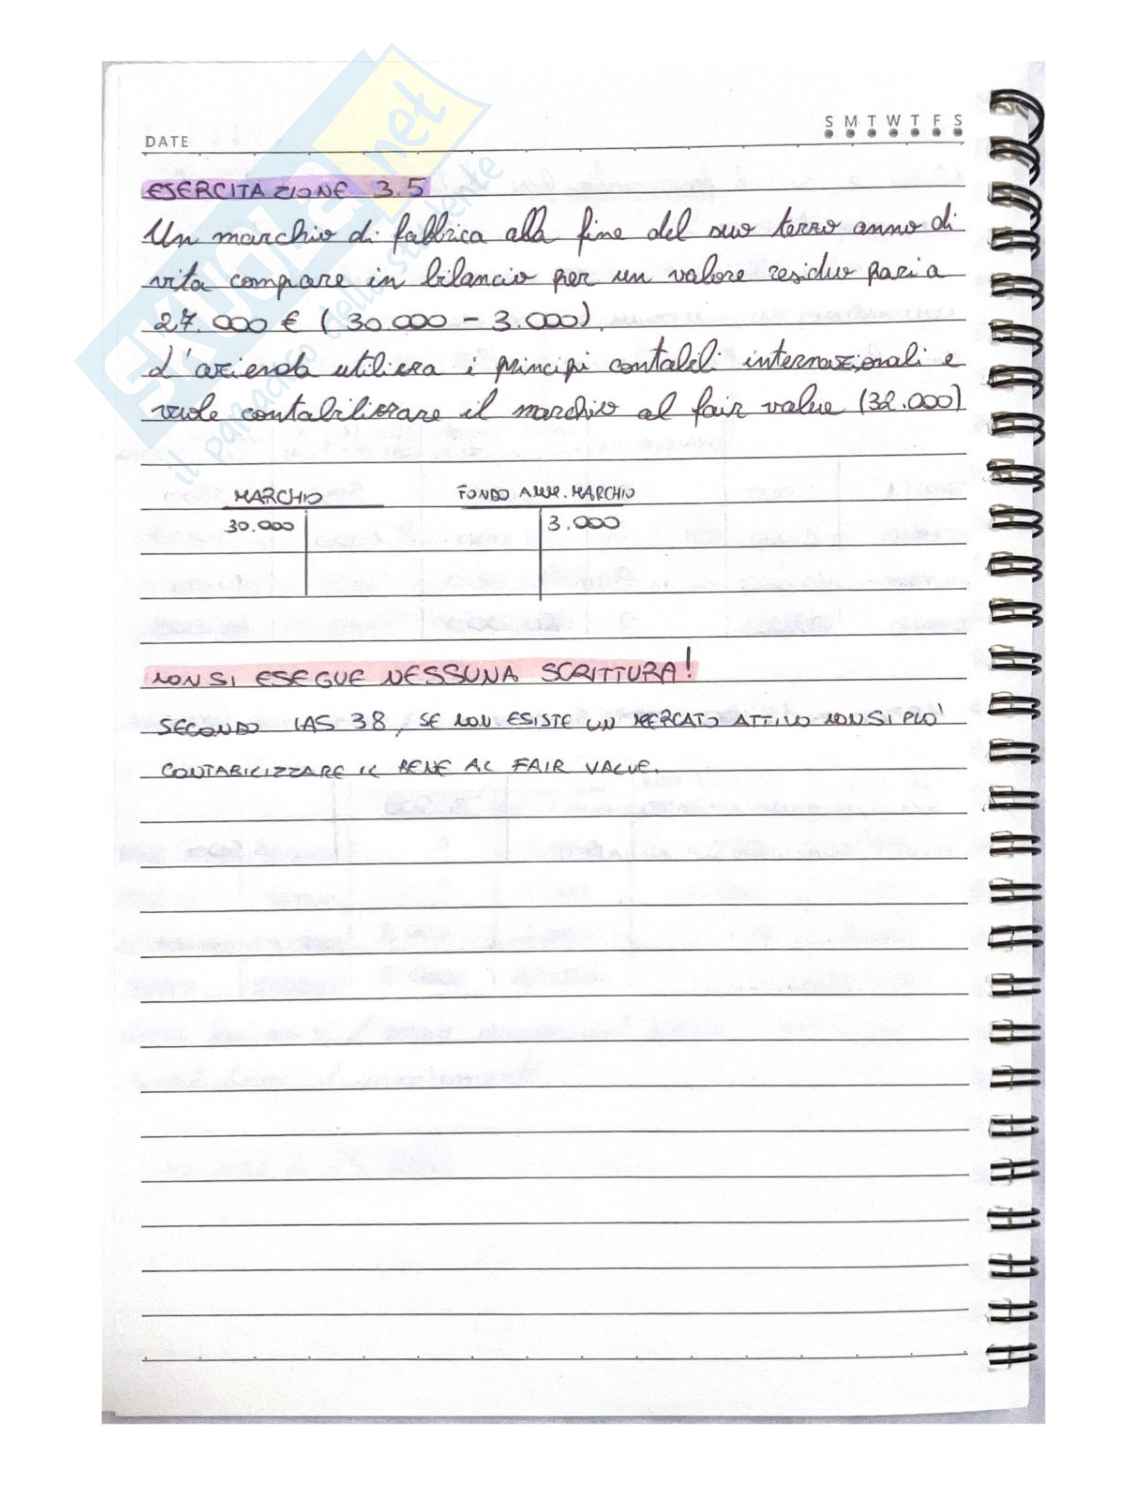 DATE
S M T W T F S
ESERCITAZIONE 3.5
Un marchio di fabbrica alla fine del suo terzo anno di
vita compare in bilancio per un valore residuo pari a
27.000 € (30.000 - 3.000).
L'azienda utilizza i principi contabili internazionali e
vuole contabilizzare il marchio al fair value (32.000)
MARCHIO
FONDO AMM. MARCHIO
30.000
3.000
NON SI ESEGUE NESSUNA SCRITTURA!
SECONDO IAS 38, SE NON ESISTE UN MERCATO ATTIVO NON SI PUO'
CONTABILIZZARE IL BENE AL FAIR VALUE.
SKUOLA.net
il paradiso dello studente